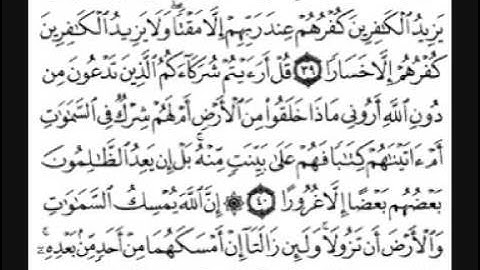 يَزِيدُ ٱلۡكَٰفِرِينَ كُفۡرُهُمۡ عِندَ رَبِّهِمۡ إِلَّا مَقۡتٗاۖ وَلَا يَزِيدُ ٱلۡكَٰفِرِينَ
كُفۡرُهُمۡ إِلَّا خَسَارٗا ٣٩ قُلۡ أَرَءَيۡتُمۡ شُرَكَآءَكُمُ ٱلَّذِينَ تَدۡعُونَ مِن
دُونِ ٱللَّهِ أَرُونِي مَاذَا خَلَقُواْ مِنَ ٱلۡأَرۡضِ أَمۡ لَهُمۡ شِرۡكٞ فِي ٱلسَّمَٰوَٰتِ
أَمۡ ءَاتَيۡنَٰهُمۡ كِتَٰبٗا فَهُمۡ عَلَىٰ بَيِّنَتٖ مِّنۡهُۚ بَلۡ إِن يَعِدُ ٱلظَّٰلِمُونَ
بَعۡضُهُم بَعۡضًا إِلَّا غُرُورًا ٤٠ ۞ إِنَّ ٱللَّهَ يُمۡسِكُ ٱلسَّمَٰوَٰتِ
وَٱلۡأَرۡضَ أَن تَزُولَاۚ وَلَئِن زَالَتَآ إِنۡ أَمۡسَكَهُمَا مِنۡ أَحَدٖ مِّنۢ بَعۡدِهِۦٓۚ